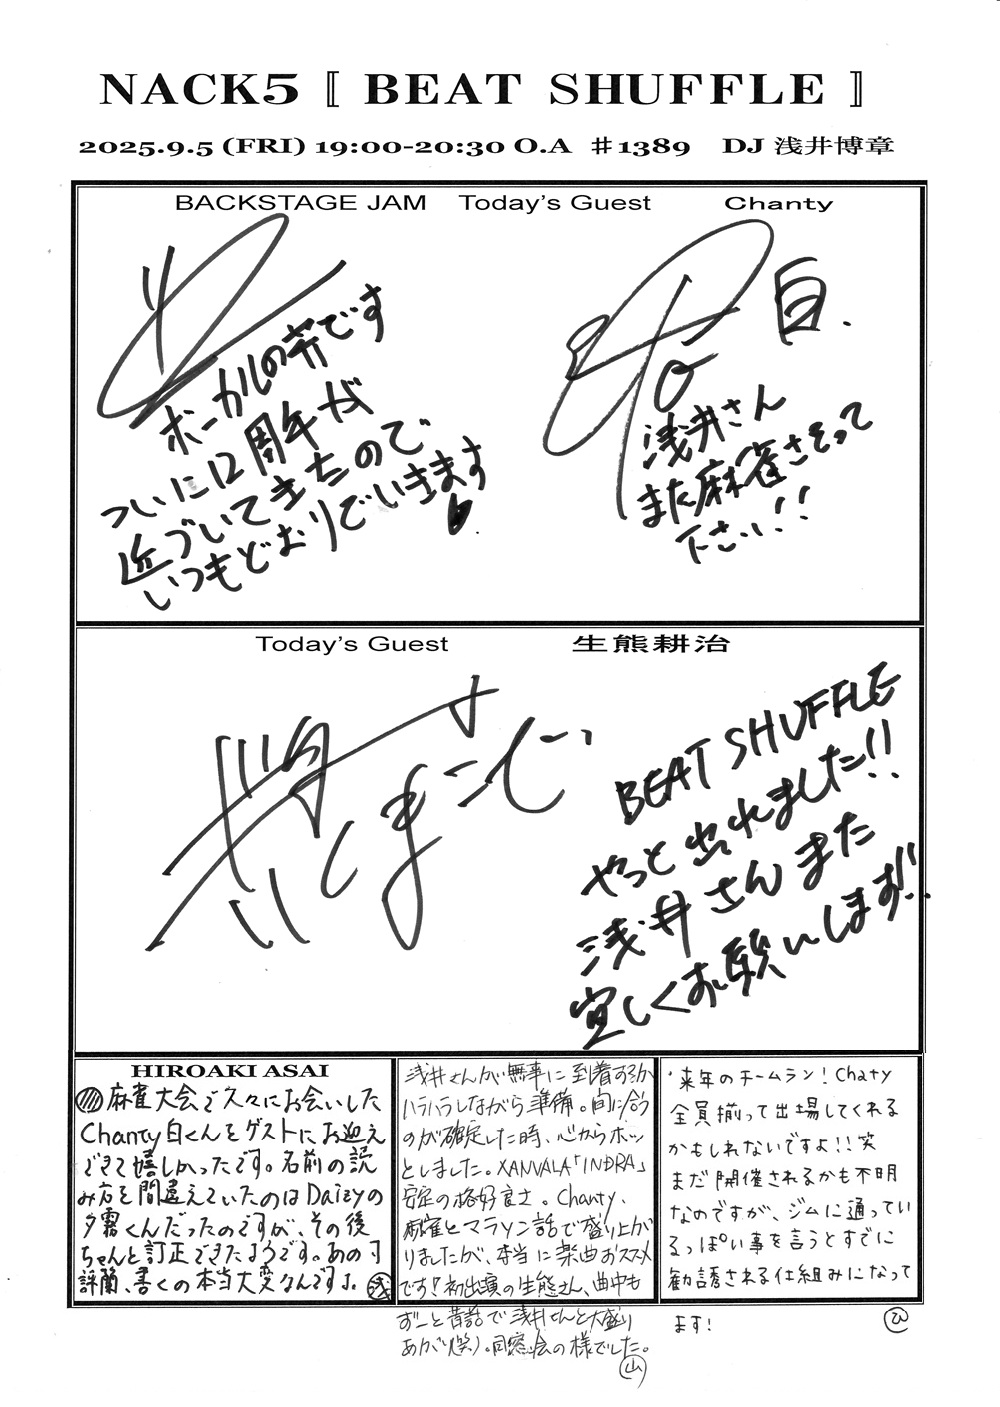 NACK5『 BEAT SHUFFLE 』
2025.9.5 (FRI) 19:00-20:30 O.A ＃1389 DJ 浅井博章
BACKSTAGE JAM Today's Guest Chanty
ボーカルの芥です
ついに12周年が
近づいてきたので、
いつもどおりでいきます
白.
浅井さん
また麻雀さそって
下さい!!
Today's Guest 生熊耕治
BEAT SHUFFLE
やっと出れました!!
浅井さんまた
宜しくお願いします!!
HIROAKI ASAI
麻雀大会で久々にお会いした
Chanty白くんをゲストにお迎え
できて嬉しかったです。名前の読
み方を間違えていたのはDaizyの
夕霧くんだったのですが、その後
ちゃんと訂正できたようです。あの寸
評蘭、書くの本当大変なんです。
浅
浅井さんが無事に到着するか
ハラハラしながら準備。間に合う
のが確定した時、心からホッ
としました。XANVALA「INDRA」
安定の格好良さ。Chanty、
麻雀とマラソン話で盛り上が
りましたが、本当に楽曲おススメ
です!初出演の生熊さん、曲中も
ずーっと昔話で浅井さんと大盛り
あがり(笑)。同窓会の様でした。
山
・来年のチームラン! Chaty
全員揃って出場してくれる
かもしれないですよ!!笑
まだ開催されるかも不明
なのですが、ジムに通ってい
るっぽい事を言うとすでに
勧誘される仕組みになって
ます!
ひ